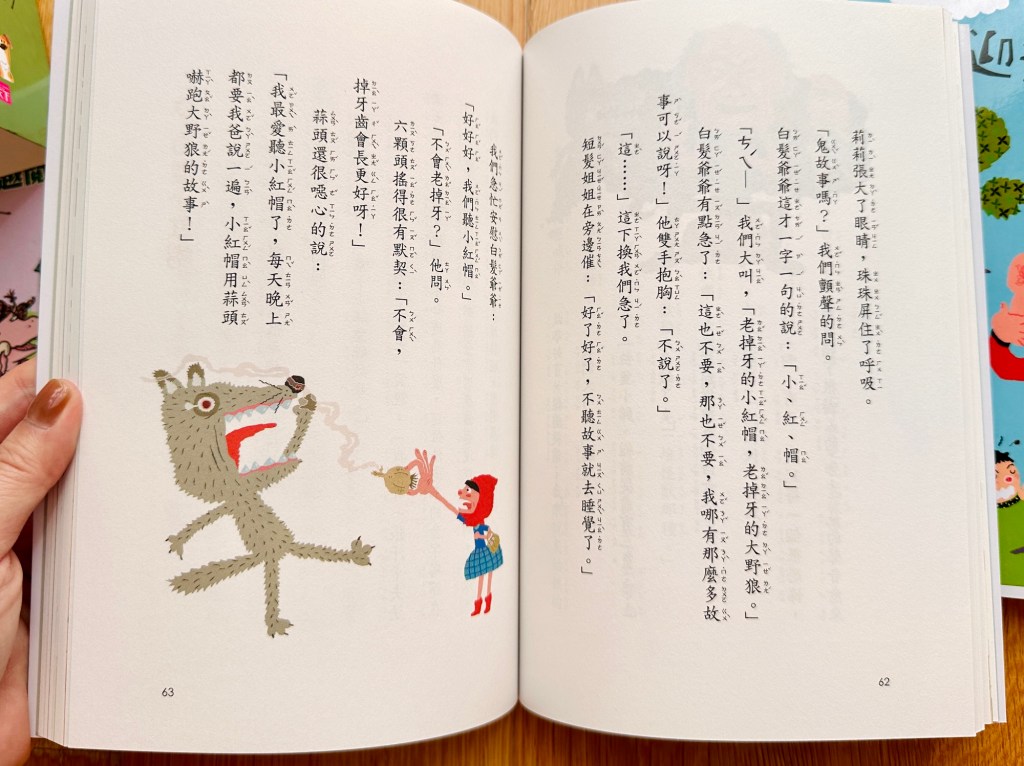 莉莉張大了眼睛，珠珠屏住了呼吸。
「鬼故事嗎？」我們顫聲的問。
白髮爺爺這才一字一句的說：「小、紅、帽。」
「ㄘㄟˊ—」我們大叫，「老掉牙的小紅帽，老掉牙的大野狼。」
白髮爺爺有點急了：「這也不要，那也不要，我哪有那麼多故
事可以說呀！」他雙手抱胸：「不說了。」
「這……」這下換我們急了。
短髮姐姐在旁邊催：「好了好了，不聽故事就去睡覺了。」
62
我們急忙安慰白髮爺爺：
「好好好，我們聽小紅帽。」
「不會老掉牙？」他問。
六顆頭搖得很有默契：「不會，
掉牙齒會長更好呀！」
蒜頭還很噁心的說：
「我最愛聽小紅帽了，每天晚上
都要我爸說一遍，小紅帽用蒜頭
嚇跑大野狼的故事！」
63